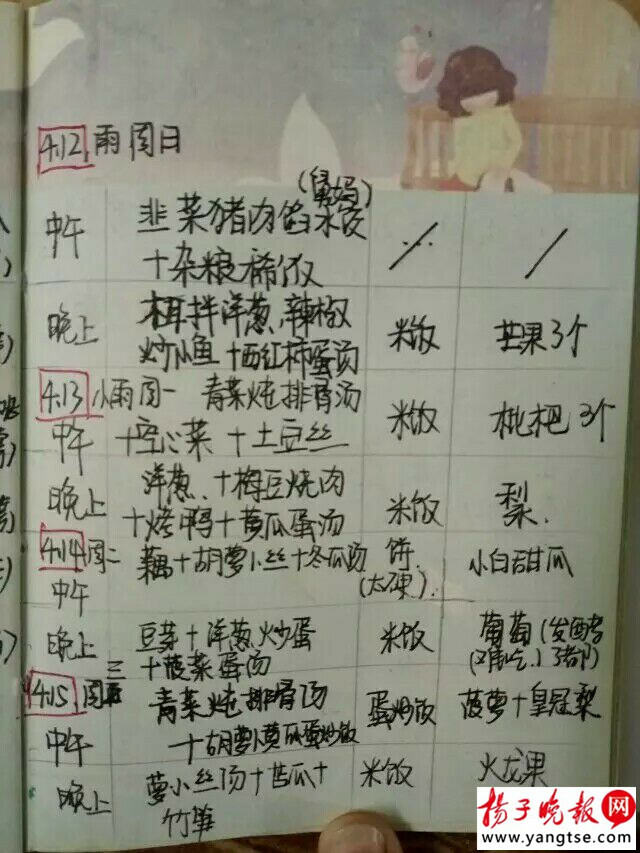 4.12 雨 周日
(舅妈)
中午 韭菜猪肉馅水饺 ⁄ /
十杂粮稀饭
晚上 木耳拌洋葱、辣椒 米饭 芒果3个
炒小鱼十西红柿蛋汤
4.13 小雨 周一 青菜炖排骨汤 米饭 枇杷 3个
中午 十空心菜 十土豆丝
晚上 洋葱、十梅豆烧肉 米饭 梨.
十烤鸭十黄瓜蛋汤
4.14 周二 藕十胡萝卜丝十冬瓜汤 饼. 小白甜瓜
中午 (太硬).
晚上 豆芽十洋葱炒蛋 米饭 葡萄(发酵者
十菠菜蛋汤 (难吃、)
4.15. 周三 青菜炖排骨汤 蛋炒饭 菠萝十皇冠梨
中午 十胡萝卜黄瓜蛋炒饭
晚上 萝卜丝汤十苦瓜十 米饭 火龙果
竹笋
扬子晚报网
www.yangtse.com